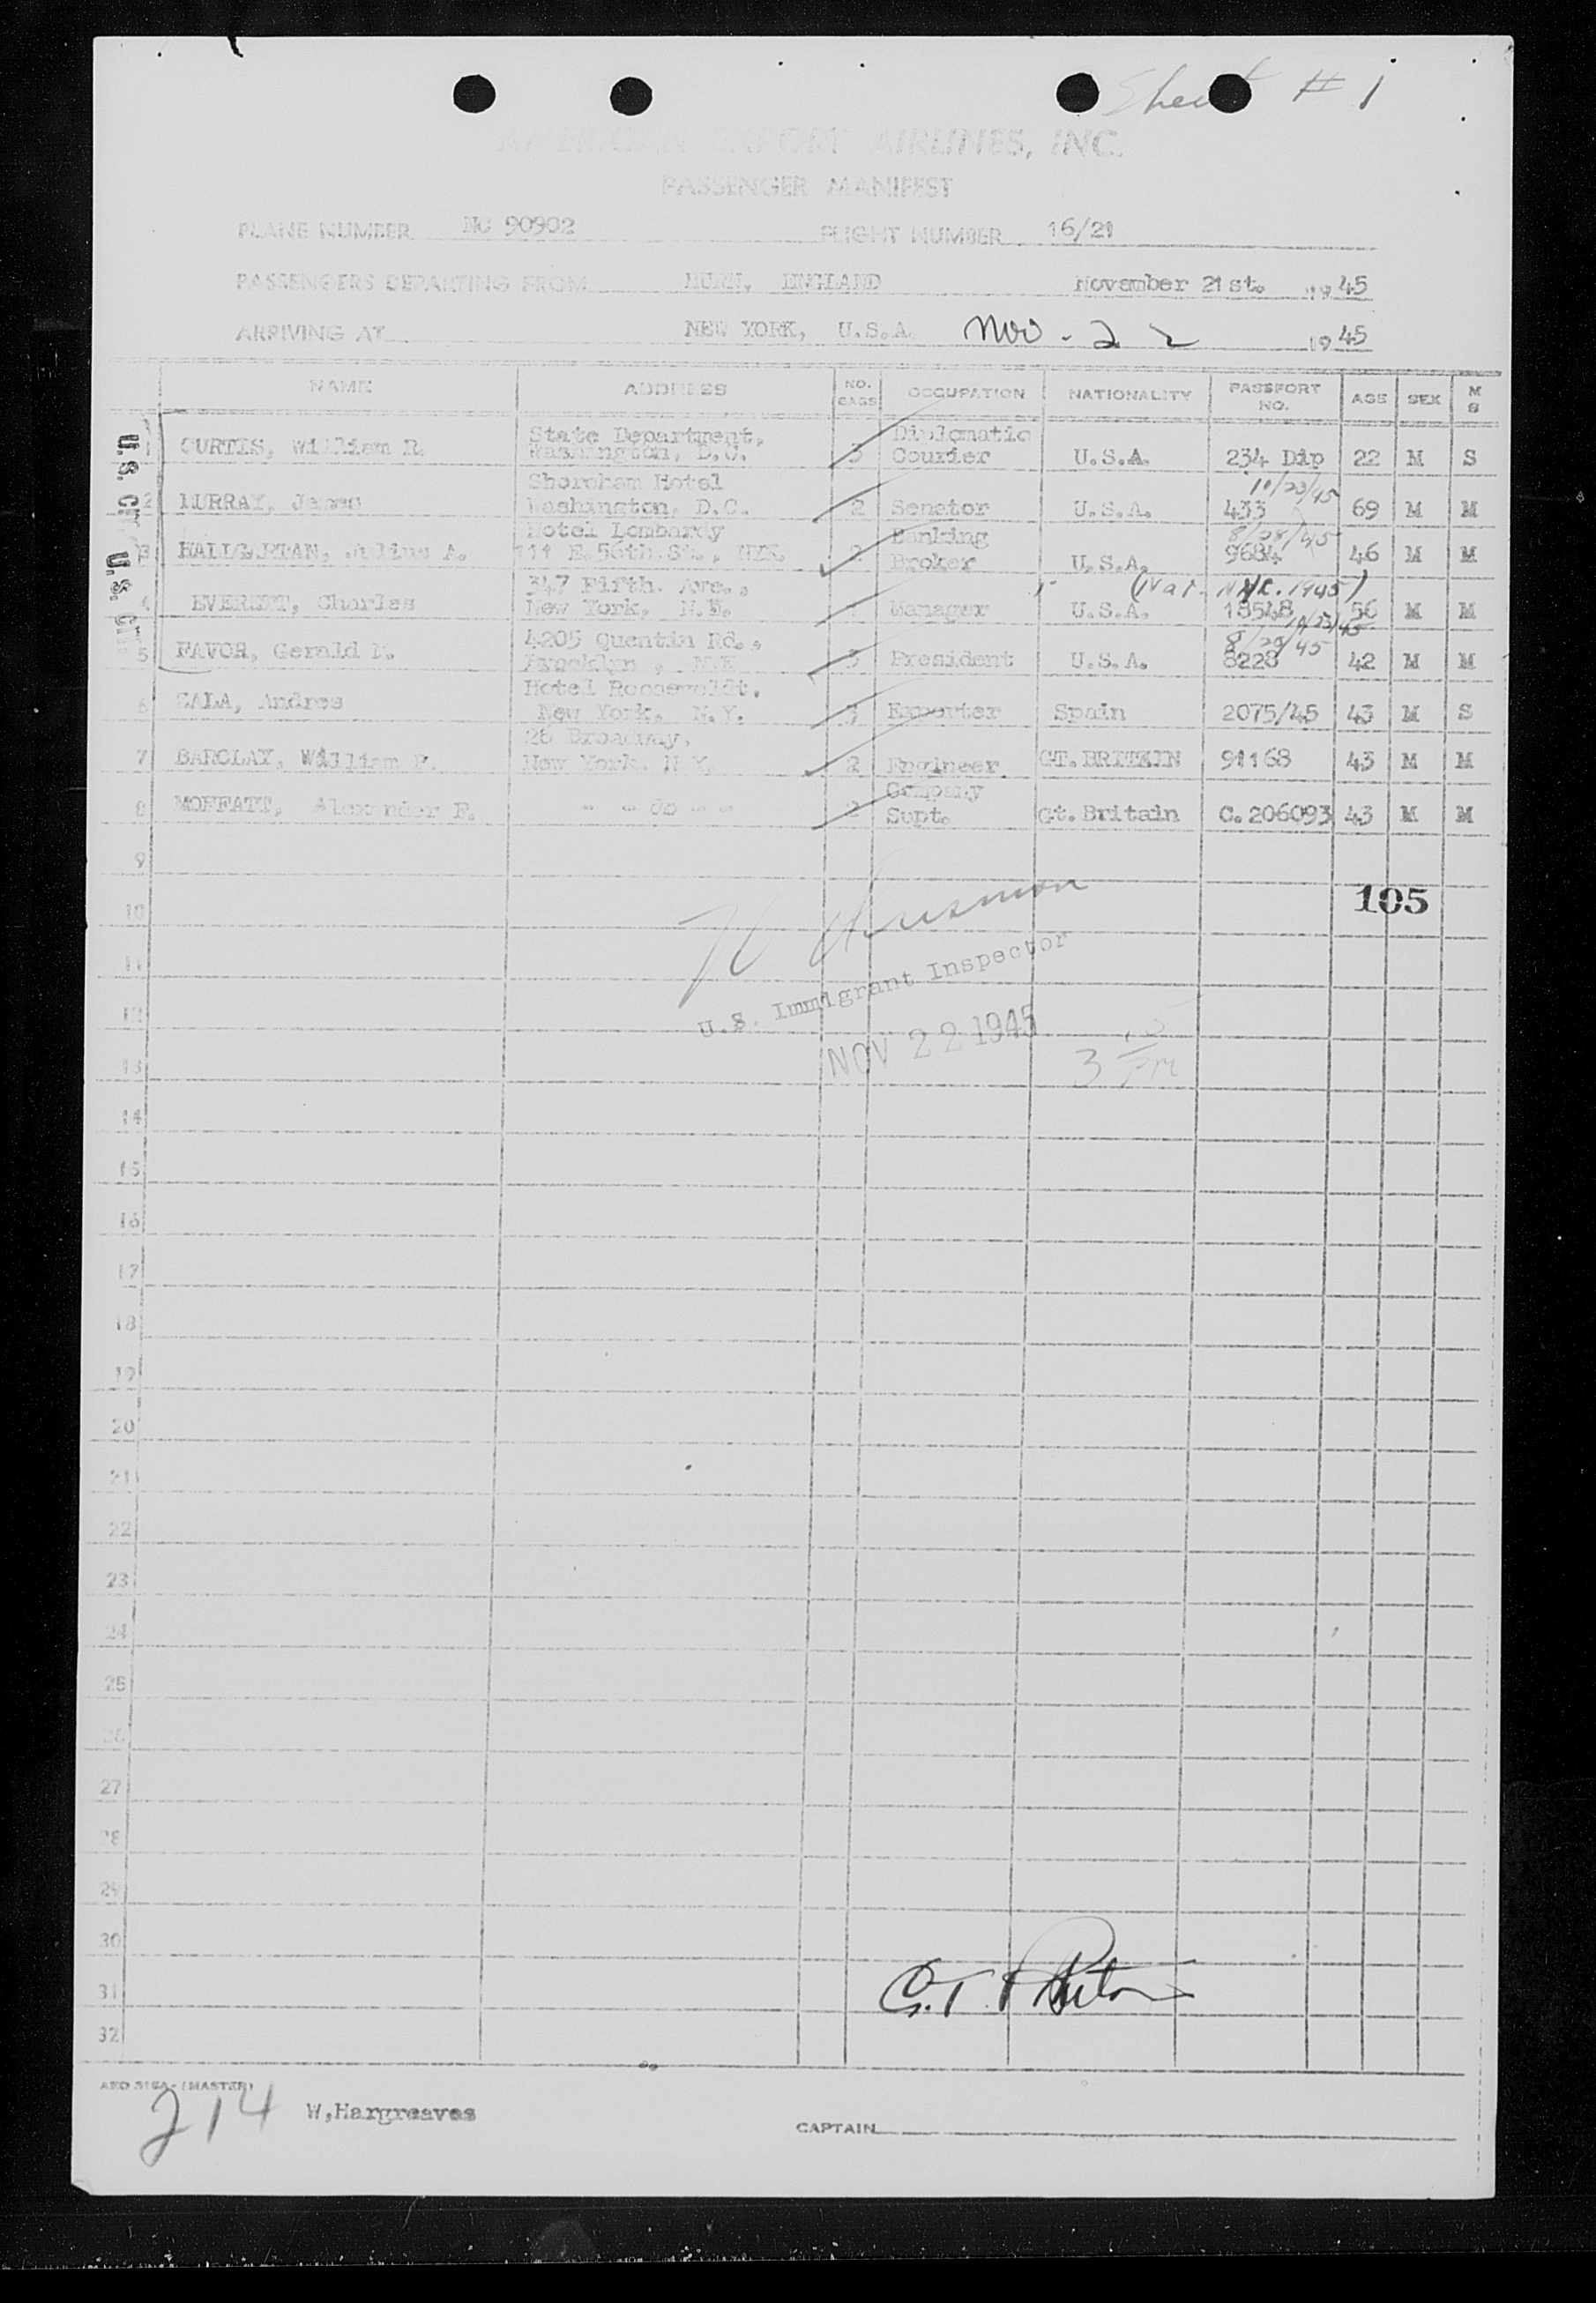 Sheet # 1
AMERICAN EXPORT AIRLINES, INC.
PASSENGER MANIFEST
PLANE NUMBER NC 90902 FLIGHT NUMBER 16/21
PASSENGERS DEPARTING FROM HURN, ENGLAND November 21st. 1945
ARRIVING AT NEW YORK, U.S.A. Nov - 22 1945
NAME ADDRESS NO. BAGS OCCUPATION NATIONALITY PASSPORT NO. AGE SEX M S
U.S. CIT
U.S. CIT
1 CURTIS, William R. State Department, Washington, D.C. 3 Diplomatic Courier U.S.A. 234 Dip 22 M S
2 MURRAY, James Shoreham Hotel Washington, D.C. 2 Senator U.S.A. 10/23/45 433 69 M M
3 HALLGARTAN, Julius A. Hotel Lombardy 111 E.56th.St., NYK. 2 Banking Broker U.S.A. 8/28/45 9684 46 M M
4 EVEREST, Charles 347 Fifth. Ave., New York, N.Y. Manager U.S.A. (Nat. NYK. 1945) 18548 10/23/45 56 M M
5 FAVOR, Gerald M. 4205 Quentin Rd., Brooklyn, N.Y. 3 President U.S.A. 8/29/45 8228 42 M M
6 SALA, Andres Hotel Roosevoldt, New York, N.Y. 3 Exporter Spain 2075/45 43 M S
7 BARCLAY, William P. 26 Broadway, New York. N.Y. 2 Engineer GT. BRITEIN 91168 43 M M
8 MOFFATT, Alexander F. " " do " " 2 Company Supt. Gt.Britain C.206093 43 M M
9
10 105
11 U.S. Immigrant Inspector
12 NOV 22 1945
13 3 15 PM
14
15
16
17
18
19
20
21
22
23
24
25
26
27
28
29
30
31
32
AEO 516A-(MASTER)
214 W,Hargreaves CAPTAIN